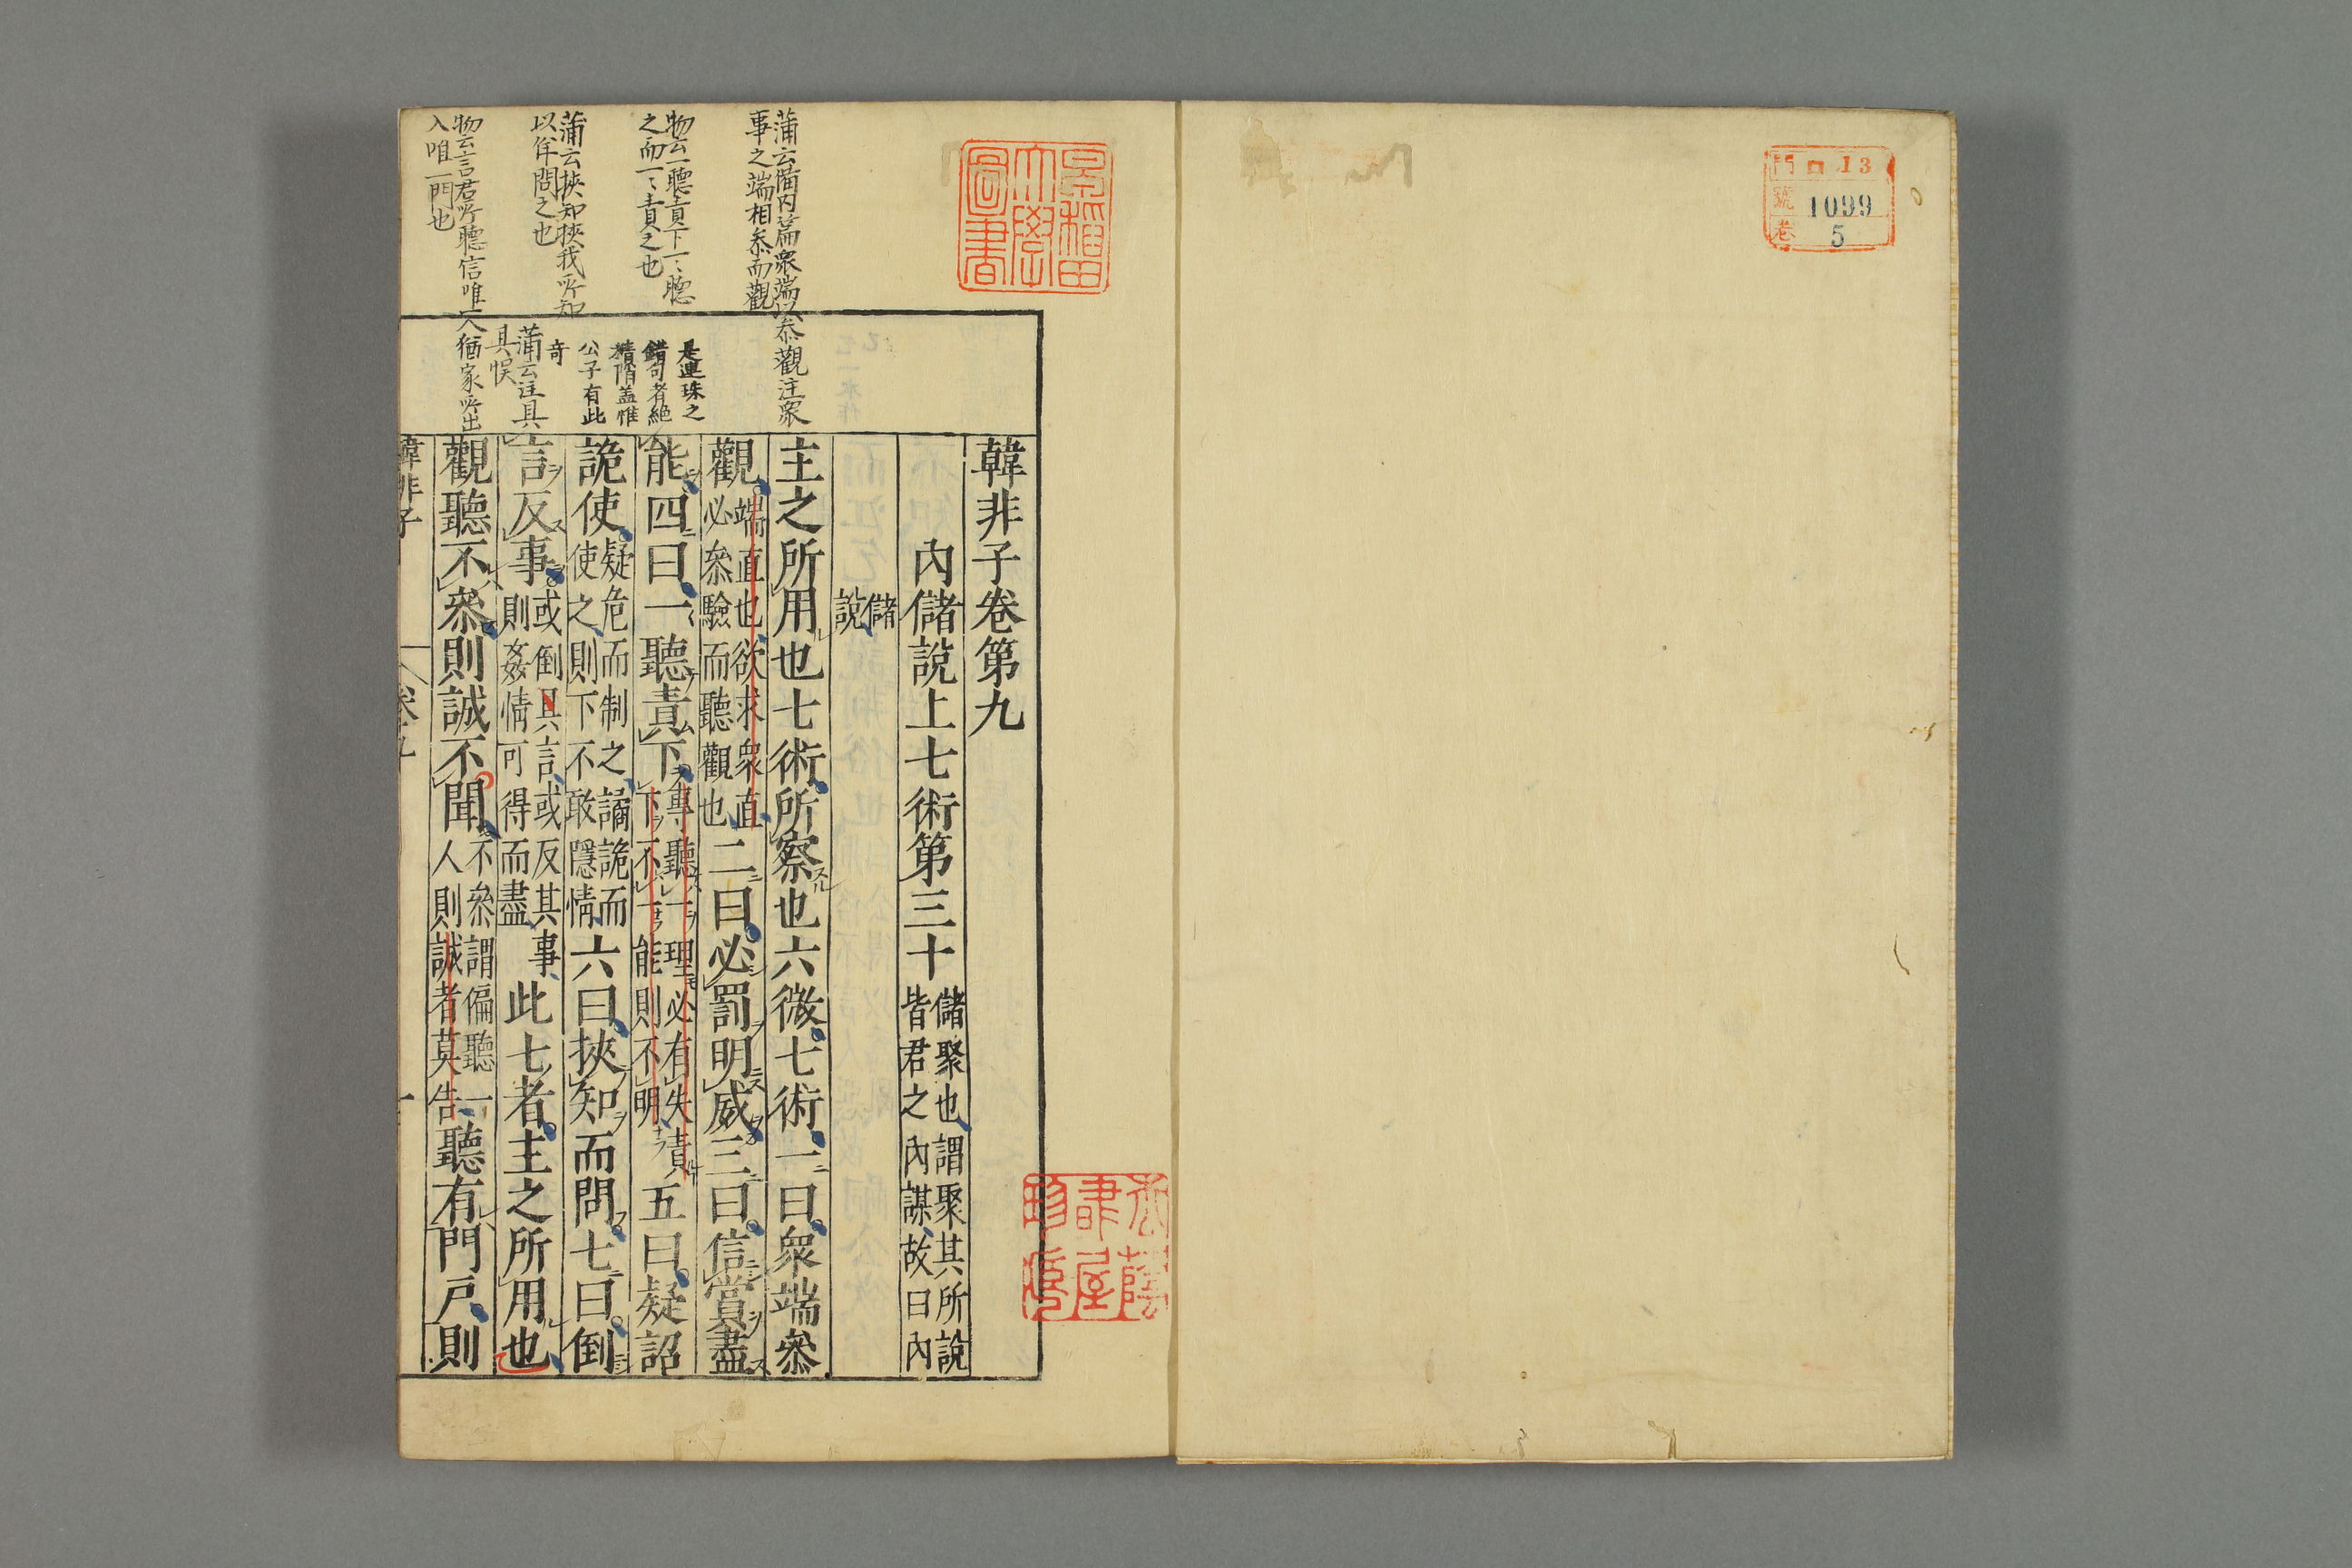 門 ロ 13
號 1099
卷 5
早稲田大學圖書
韓非子卷第九
內儲說上七術第三十
儲聚也、謂聚其所說
皆君之內謀、故曰內
儲
說
主之所用也七術、所察也六微、七術、一曰、衆端參
觀、
端直也、欲求衆直、
必參驗而聽觀也、
二曰、必罰明威、三曰、信賞盡
能、四曰、一聽責下、
專聽一理必有失責
下不一能則不明
五曰、疑詔
詭使、
疑危而制之、譎詭而
使之、則下不敢隱情、
六曰、挾知而問、七曰、倒
言反事、
或倒其言、或反其事、
則姦情可得而盡、
此七者、主之所用也、
觀聽不參、則誠不聞、
不參謂偏聽一
人則誠者莫告、
聽有門戶、則
韓非子
卷九
一
蒲云備内篇衆端以参觀注衆
事之端相参而觀
物云一聽責下一〻聽
之而一〻責之也
蒲云挾知挾我所知
以佯問之也
物云言君所聽信唯一人猶家所出
入唯一門也
是連珠之
錯句者絶
精隋盖惟
公子有此
奇
蒲云注具
具悞